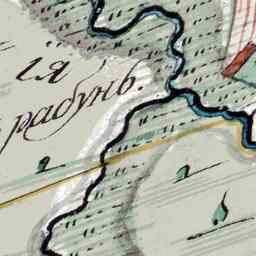 ія
рабунь.